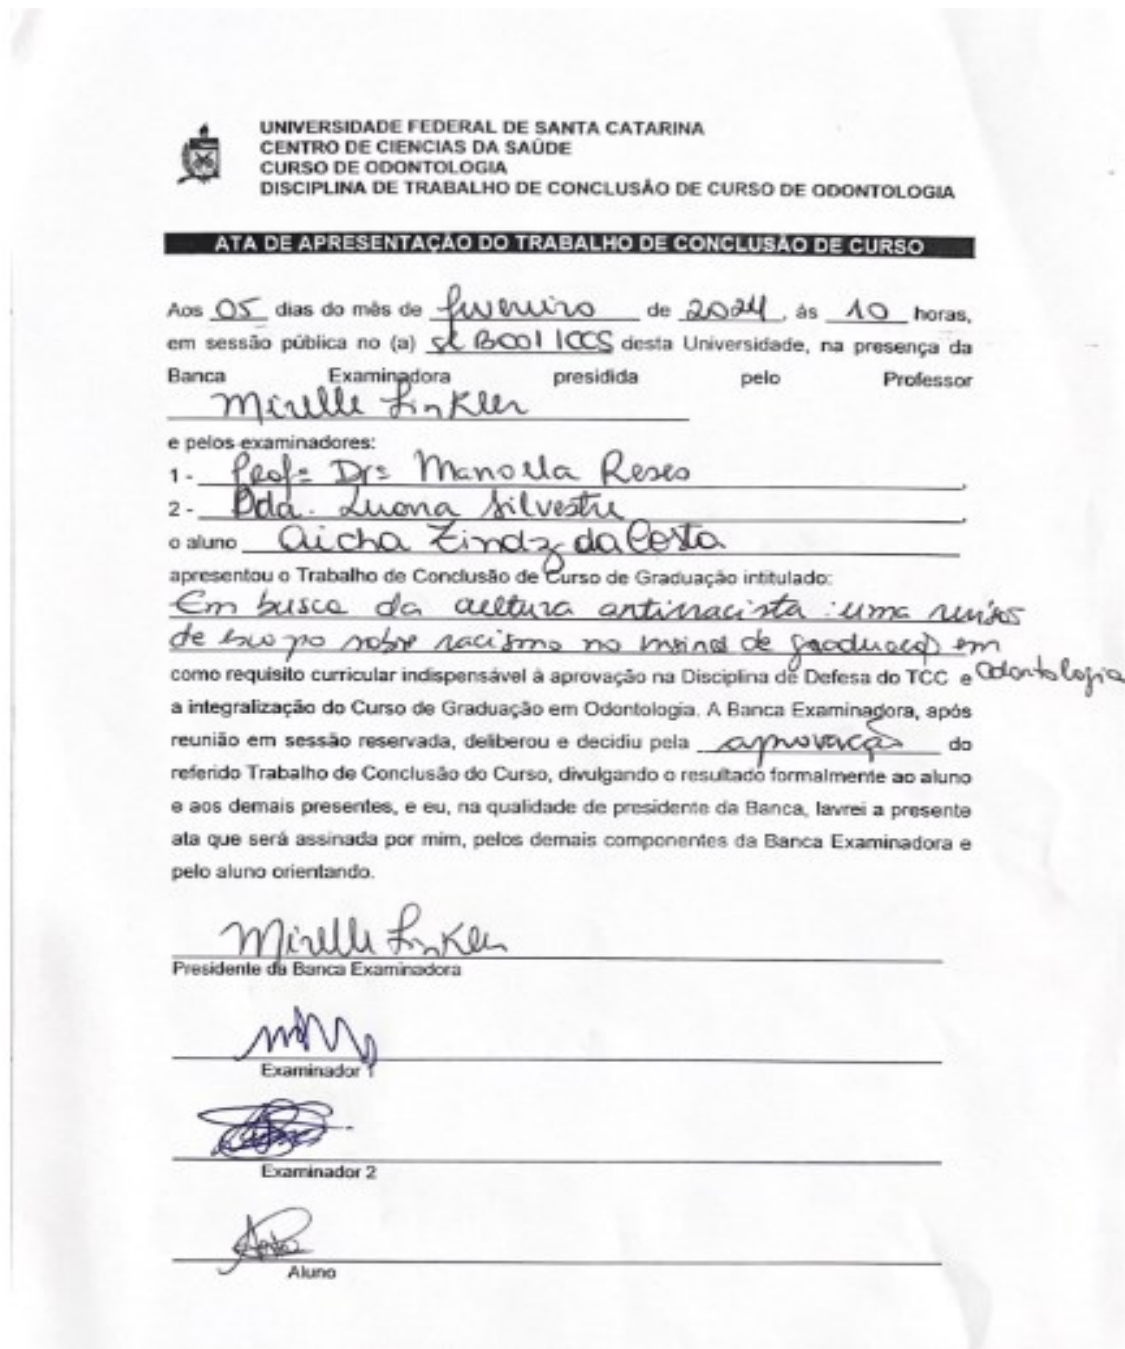 UNIVERSIDADE FEDERAL DE SANTA CATARINA
CENTRO DE CIENCIAS DA SAÚDE
CURSO DE ODONTOLOGIA
DISCIPLINA DE TRABALHO DE CONCLUSÃO DE CURSO DE ODONTOLOGIA
ATA DE APRESENTAÇÃO DO TRABALHO DE CONCLUSÃO DE CURSO
Aos 05 dias do mês de fevereiro de 2024, às 10 horas,
em sessão pública no (a) desta Universidade, na presença da
Banca Examinadora presidida pelo Professor
Mirelle Finkler
e pelos examinadores:
1 - Profª Drª Manoela Reses,
2 - Dda. Luana Silvestre,
o aluno Aicha Zindz da Costa
apresentou o Trabalho de Conclusão de Curso de Graduação intitulado:
Em busca da cultura antirracista : uma revisão
de escopo sobre racismo no ensino de graduação em
como requisito curricular indispensável à aprovação na Disciplina de Defesa do TCC e Odontologia
a integralização do Curso de Graduação em Odontologia. A Banca Examinadora, após
reunião em sessão reservada, deliberou e decidiu pela aprovação do
referido Trabalho de Conclusão do Curso, divulgando o resultado formalmente ao aluno
e aos demais presentes, e eu, na qualidade de presidente da Banca, lavrei a presente
ata que será assinada por mim, pelos demais componentes da Banca Examinadora e
pelo aluno orientando.
Mirelle Finkler
Presidente da Banca Examinadora
Examinador 1
Examinador 2
Aluno